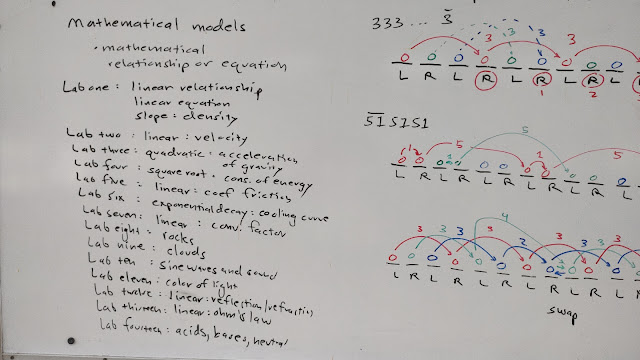 Mathematical models
· mathematical
relationship or equation
Lab one: linear relationship
linear equation
slope: density
Lab two: linear: velocity
Lab three: quadratic: acceleration
of gravity
Lab four: square root: cons. of energy
Lab five: linear: coef friction
Lab six: exponential decay: cooling curve
Lab seven: linear: conv. factor
Lab eight: rocks
Lab nine: clouds
Lab ten: sine waves and sound
Lab eleven: color of light
Lab twelve: linear: reflection/refraction
Lab thirteen: linear: ohm's law
Lab fourteen: acids, bases, neutral
333... 3̄
3 3 3 3
0 0 0 0 0 0 0 0
L R L R L R L R L
1 2
5̄1̄ 5151
5
1 5 1 1 5
0 0 0 0 0 0 0 0 0
L R L R L R L R L R L
4
3 3 3 3 2 3 3 3
0 0 0 0 0 0 0 0 0 0 0
L R L R L R L R L R L R
swap